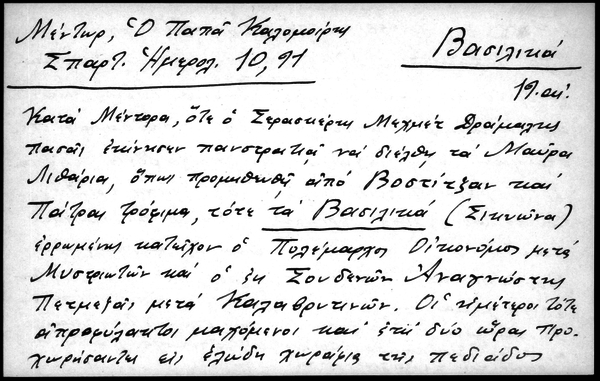 Μέντωρ, Ὁ Παπᾶ Καλομοίρης
Σπαρτ. Ἡμερολ. 10, 91
Βασιλικά
19. αἰ.
Κατὰ Μέντορα, ὅτε ὁ Σερασκέρης Μεχμὲτ Δράμαλης
πασᾶς ἐκίνησεν πανστρατιᾷ νὰ διέλθῃ τὰ Μαῦρα
Λιθάρια, ὅπως προμηθευθῇ ἀπὸ Βοστίτζαν καὶ
Πάτρας τρόφιμα, τότε τὰ Βασιλικά (Σικυῶνα)
ἐρρωμένως κατεῖχον ὁ Πολέμαρχος Οἰκονόμος μετὰ
Μυστριωτῶν καὶ ὁ ἐκ Σουδενῶν Ἀναγνώστης
Πετμεζᾶς μετὰ Καλαβρυτινῶν. Οἱ ἡμέτεροι τότε
ἀπροφύλακτοι μαχόμενοι καὶ ἐπὶ δύο ὥρας προ-
χωρήσαντες εἰς ἑλώδη χωράφια τῆς πεδιάδος